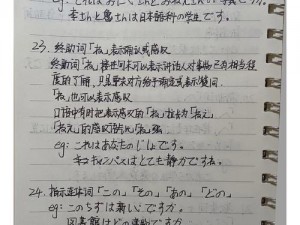 李さんと唐さんは日本語科の学生です。
23. 终助词「ね」表示确认或感叹
终助词「ね」接在句末可以表示讲话人对事物已有相当程
度的了解，只是要求对方给予确定或表示赞同.
「ね」也可以表示感叹
口语中有时把表示感叹的「ね」拉长为「ねえ」
「ねえ」的感叹语气比「ね」强
eg: これはあなたのじしょですね.
キャンパスはとても静かですね.
24. 指示连体词「この」「その」「あの」「どの」
eg: このちずは新しいですか.
図書館はどの建物ですか